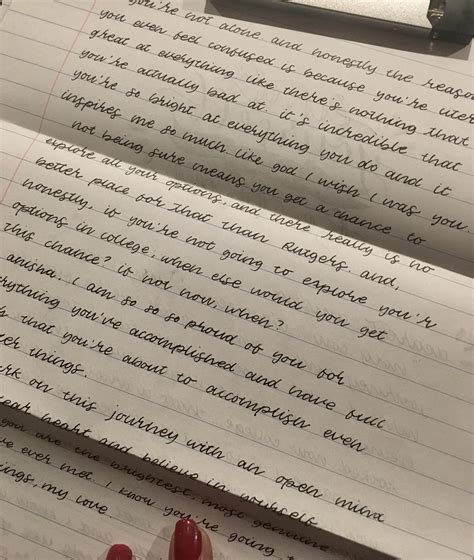 you're not alone. and honestly the reason
you even feel confused is because you're liter
great at everything like there's nothing that
you're actually bad at. it's incredible that
you're so bright at everything you do and it
inspires me so much. like god i wish i was you.
not being sure means you get a chance to
explore all your options. and there really is no
better place for that than Rutgers. and,
honestly, if you're not going to explore you'r
options in college, when else would you get
this chance? if not now, when?
anisha, i am so so so proud of you for
rything you've accomplished and have full
that you're about to accomplish even
ter things.
rk on this journey with an open mind
ear heart and believe in yourself
you are the brightest, most genuine
ve ever met. i know you're going
ings, my love